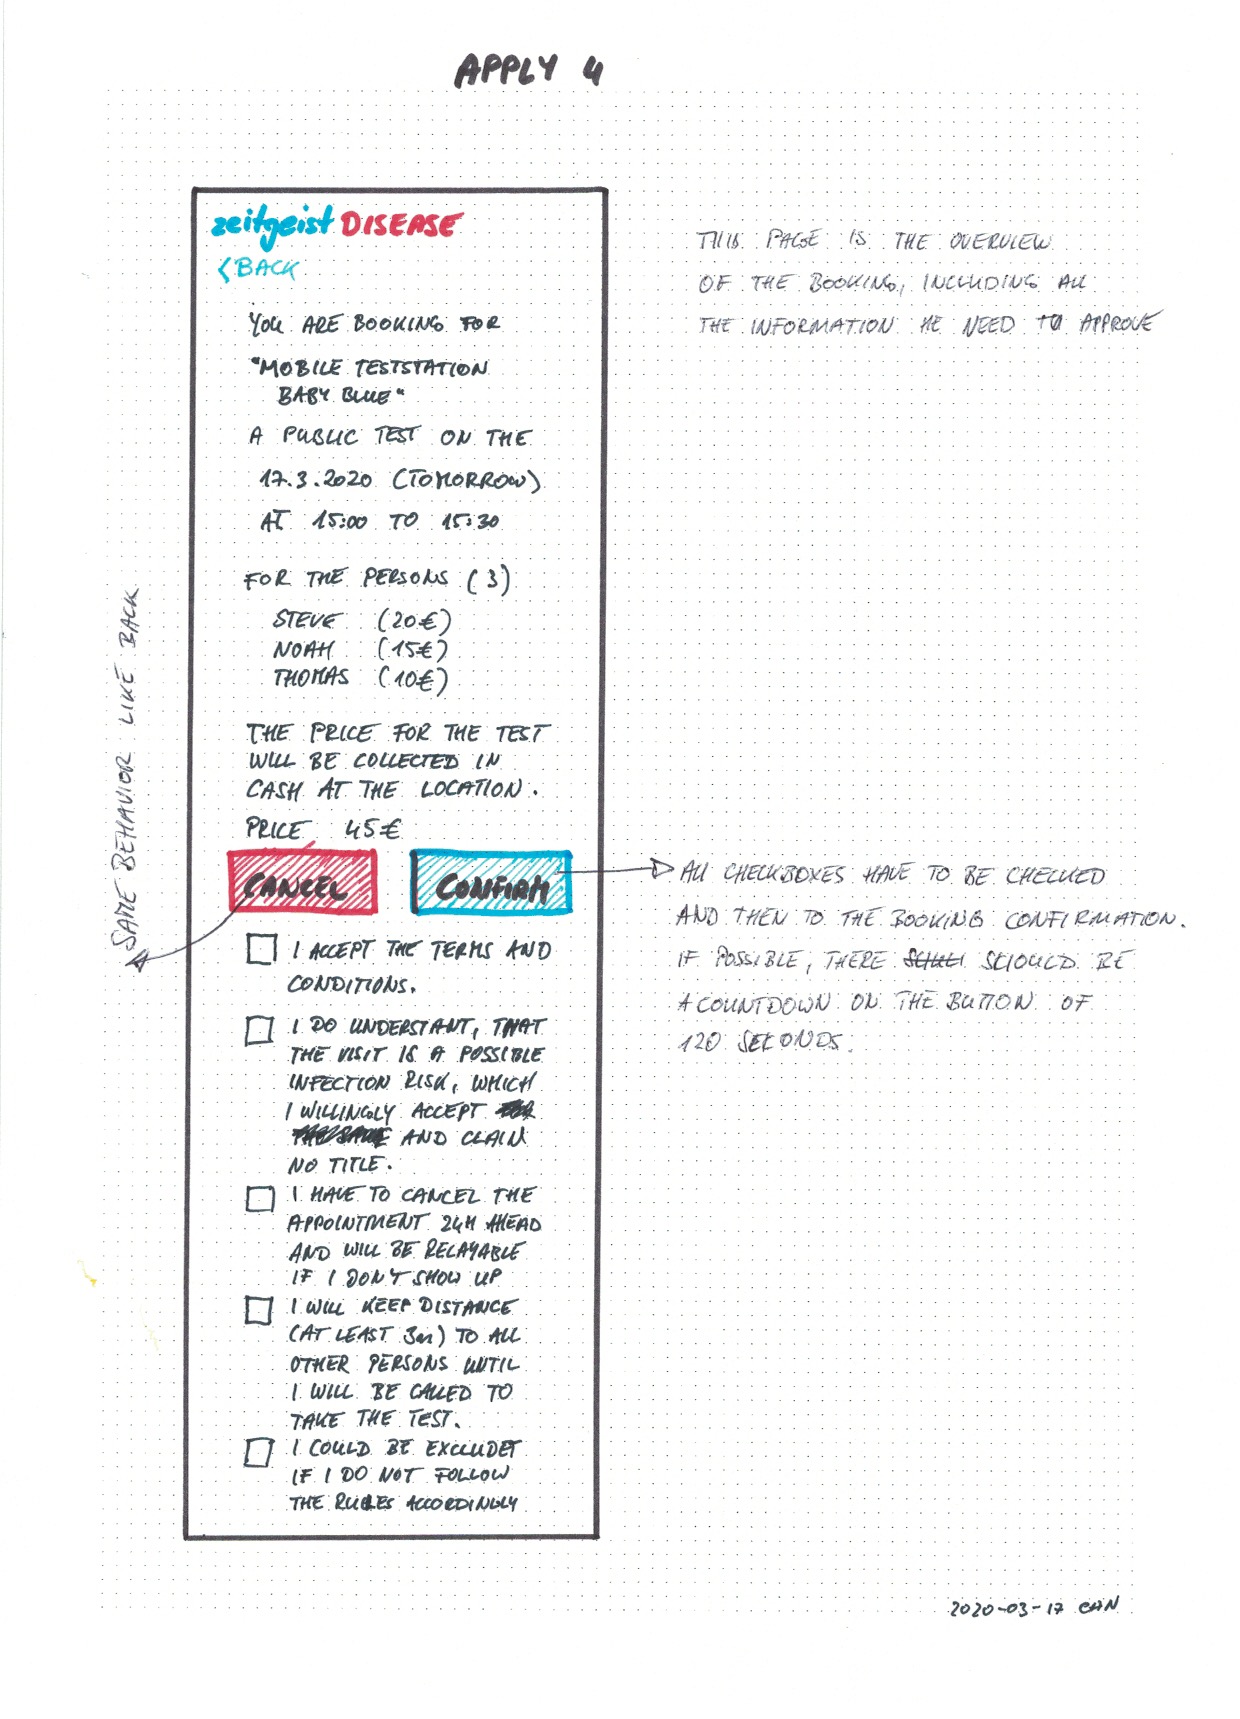 APPLY 4
zeitgeist DISEASE
< BACK
YOU ARE BOOKING FOR
"MOBILE TESTSTATION
BABY BLUE"
A PUBLIC TEST ON THE
17.3.2020 (TOMORROW)
AT 15:00 TO 15:30
FOR THE PERSONS (3)
STEVE (20€)
NOAH (15€)
THOMAS (10€)
THE PRICE FOR THE TEST
WILL BE COLLECTED IN
CASH AT THE LOCATION.
PRICE 45€
CANCEL CONFIRM
I ACCEPT THE TERMS AND
CONDITIONS.
I DO UNDERSTANT, THAT
THE VISIT IS A POSSIBLE
INFECTION RISK, WHICH
I WILLINGLY ACCEPT
AND CLAIM
NO TITLE.
I HAVE TO CANCEL THE
APPOINTMENT 24H AHEAD
AND WILL BE RELAYABLE
IF I DON'T SHOW UP
I WILL KEEP DISTANCE
(AT LEAST 3m) TO ALL
OTHER PERSONS UNTIL
I WILL BE CALLED TO
TAKE THE TEST.
I COULD BE EXCLUDET
IF I DO NOT FOLLOW
THE RULES ACCORDINGLY
SAME BEHAVIOR LIKE BACK
THIS PAGE IS THE OVERVIEW
OF THE BOOKING, INCLUDING ALL
THE INFORMATION HE NEED TO APPROVE
ALL CHECKBOXES HAVE TO BE CHECKED
AND THEN TO THE BOOKING CONFIRMATION.
IF POSSIBLE, THERE SHOULD BE
A COUNTDOWN ON THE BUTTON OF
120 SECONDS.
2020-03-17 CAN